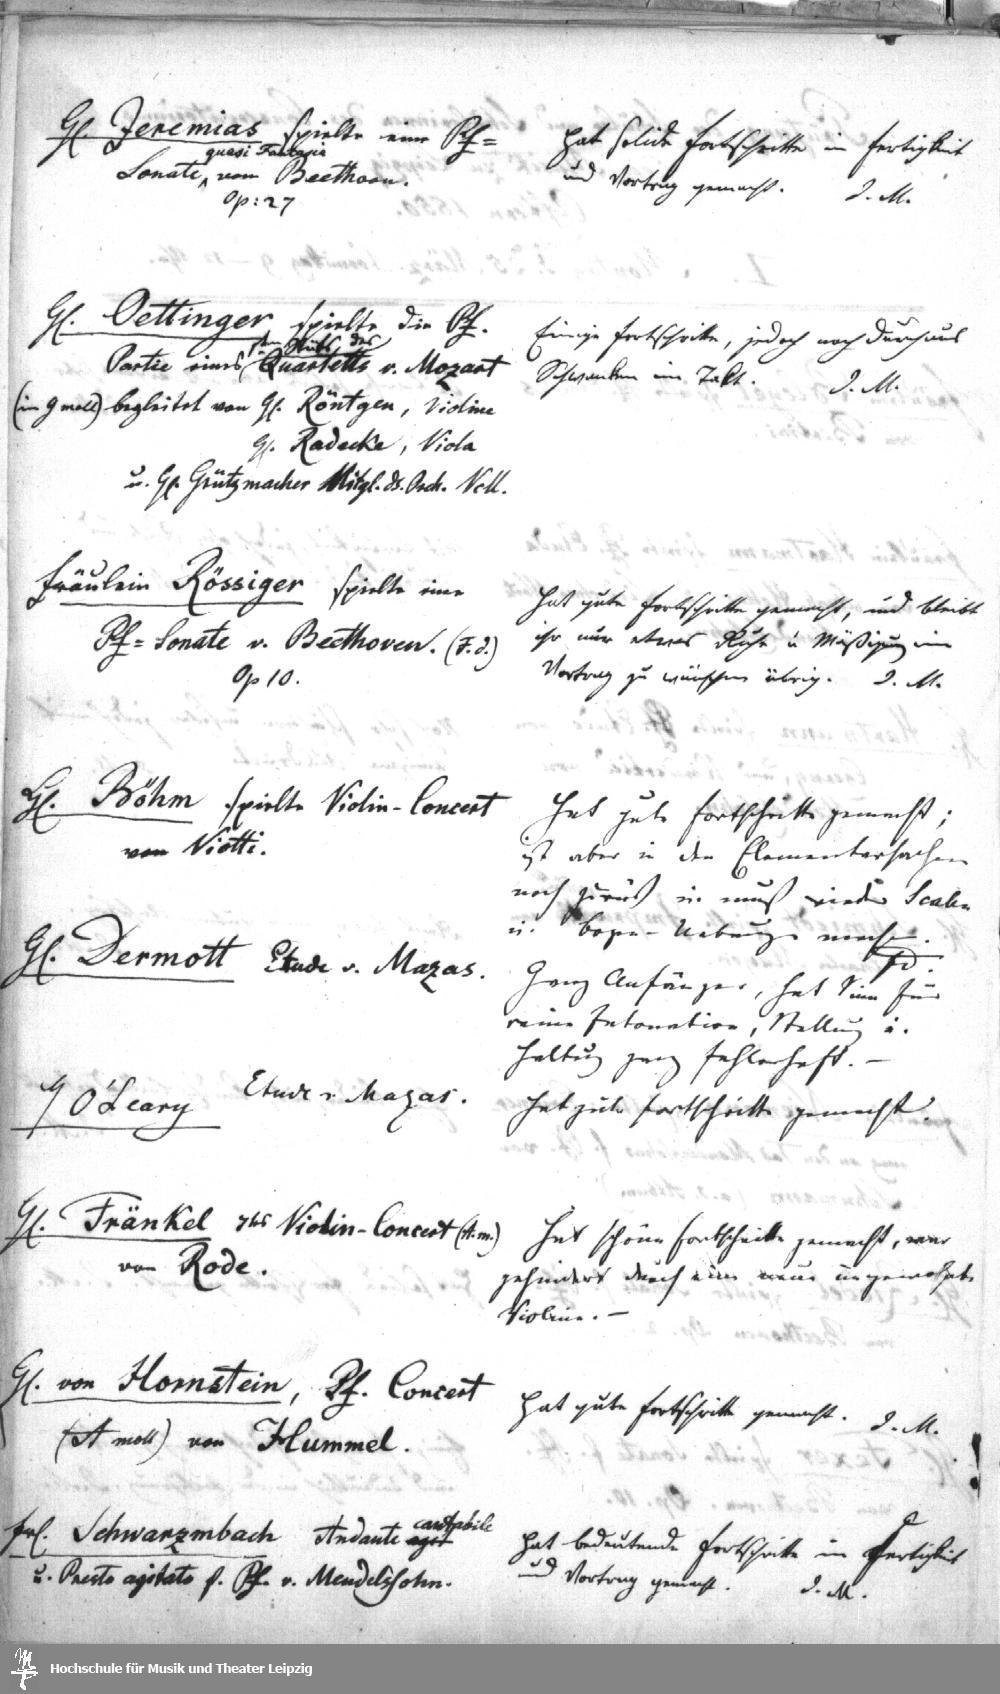 H. Jeremias spielte eine Pf=
quasi Fantasia
Sonate, von Beethoven.
Op: 27
hat solide Fortschritte in Fertigkeit
und Vortrag gemacht. I. M.
H. Oettinger spielte die Pf.
Partie eines Quartetts v. Mozart
(in g moll) begleitet von H. Röntgen, Violine
H. Radecke, Viola
u. H. Grützmacher Mitgl. ds. Orch. Vcll.
Einige Fortschritte, jedoch noch durchaus
Schwanken im Takt. I. M.
Fräulein Rössiger spielte eine
Pf=Sonate v. Beethoven. (F. d.)
Op 10.
Hat gute Fortschritte gemacht, und bleibt
ihr nur etwas Ruhe u Mäßigung im
Vortrag zu wünschen übrig. I. M.
H. Böhm spielte Violin-Concert
von Viotti.
Hat gute Fortschritte gemacht;
ist aber in den Elementarsachen
noch zurück u. muß wieder Scalen
u. Bogen-Uebungen machen.
FD.
H. Dermott Etude v. Mazas.
Ganz Anfänger, hat Sinn für
reine Intonation, Stellung u.
Haltung ganz fehlerhaft. —
H O'Leary Etude v. Mazas.
Hat gute Fortschritte gemacht.
H. Fränkel 7tes Violin-Concert (A. m.)
von Rode.
Hat schöne Fortschritte gemacht, war
gehindert durch eine neue ungewohnte
Violine. —
H. von Hornstein, Pf. Concert
(A moll) von Hummel.
Hat gute Fortschritte gemacht. I. M.
Frl. Schwarzmbach Andante cantabile
u. Presto agitato f. Pf. v. Mendelssohn.
hat bedeutende Fortschritte in Fertigkeit
und Vortrag gemacht. I. M.
Hochschule für Musik und Theater Leipzig